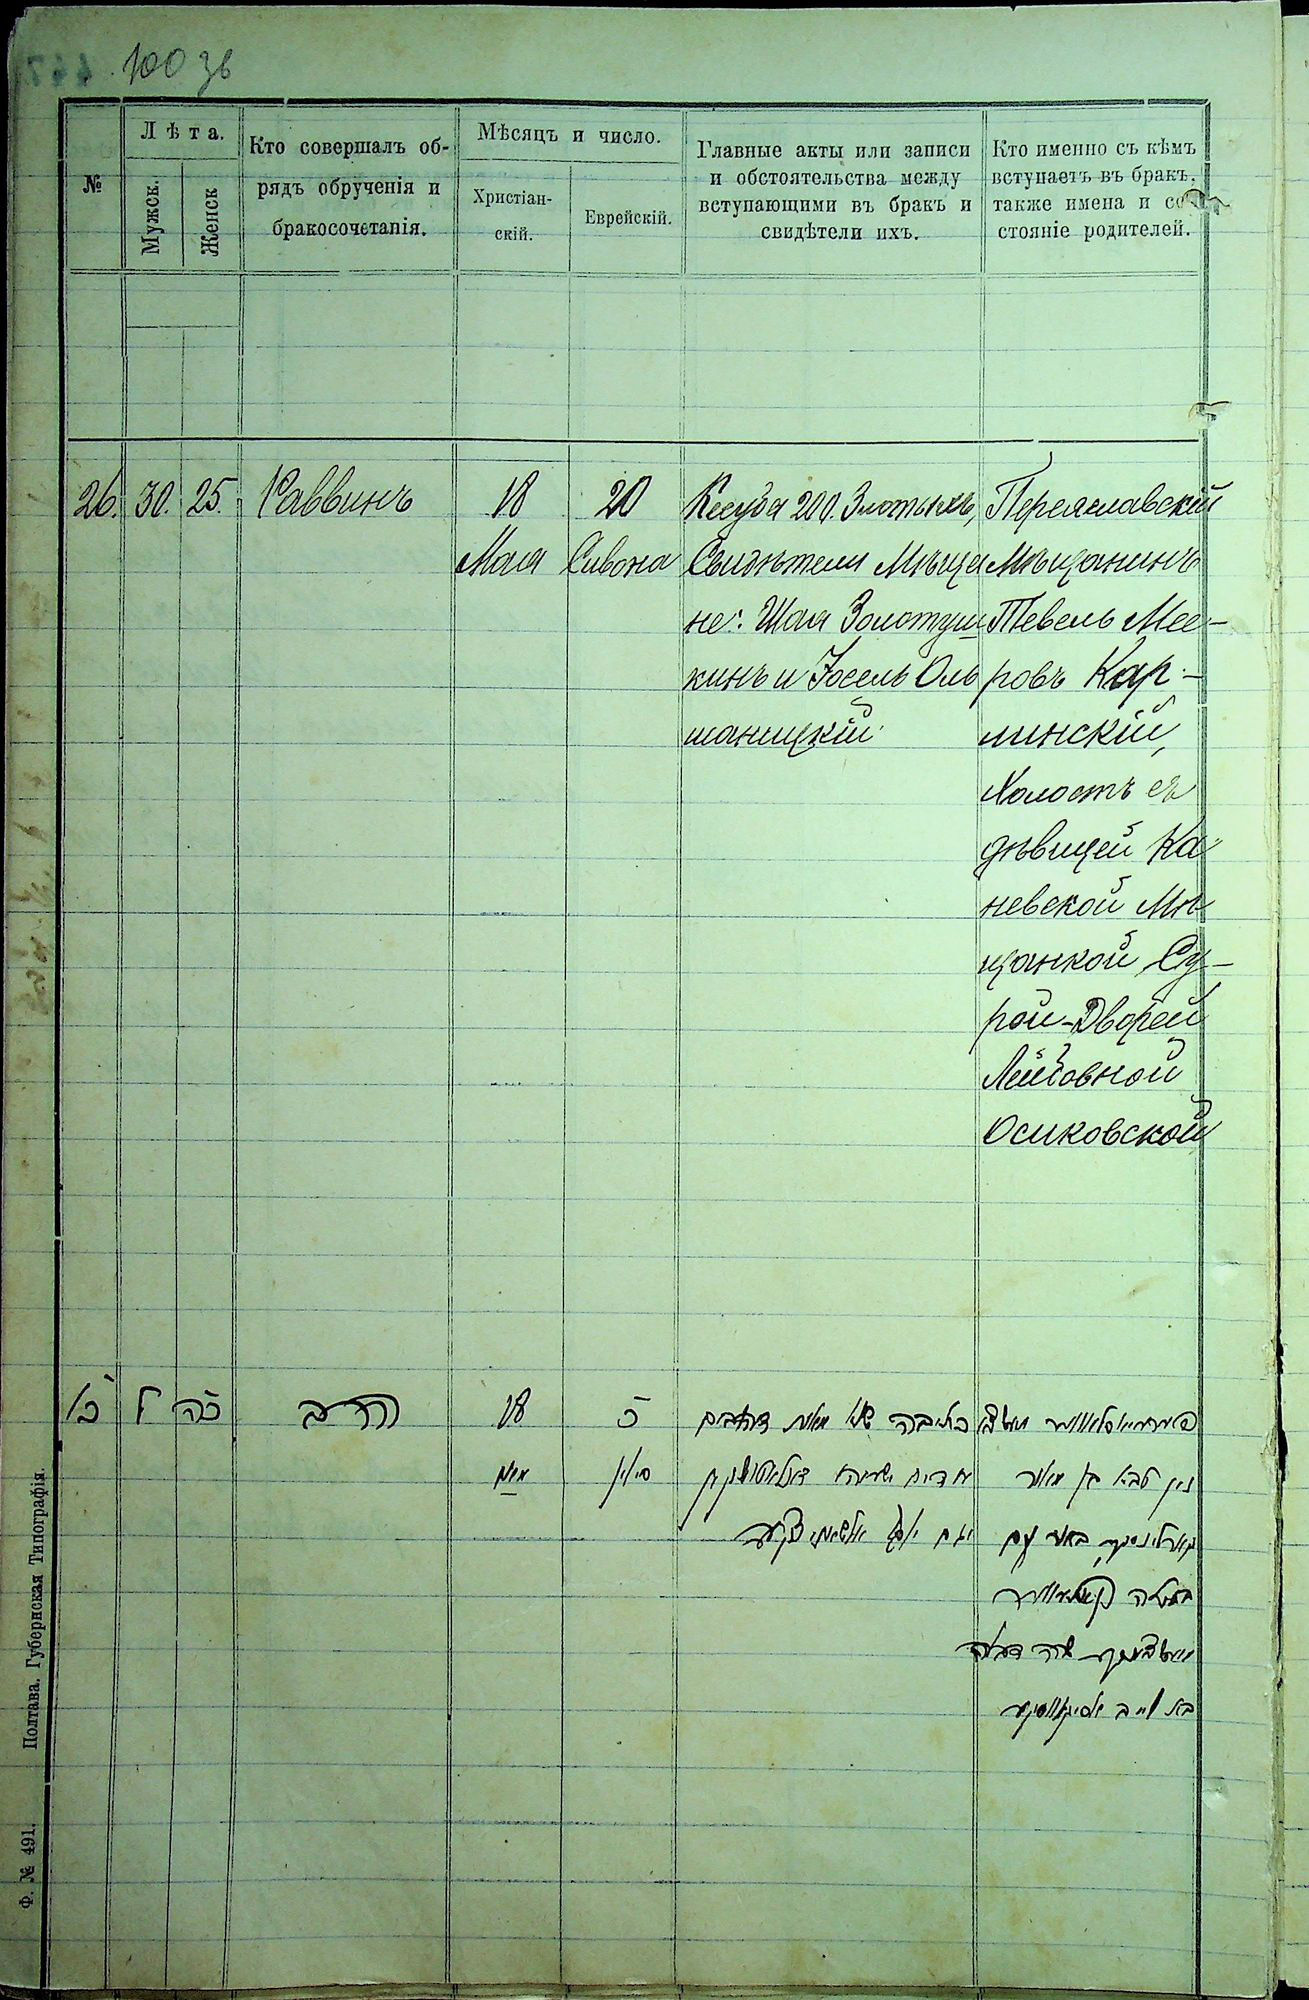 100 зв
№
Лѣта.
Мужск.
Женск
Кто совершалъ об-
рядъ обрученія и
бракосочетанія.
Мѣсяцъ и число.
Христіан-
скій.
Еврейскій.
Главные акты или записи
и обстоятельства между
вступающими въ бракъ и
свидѣтели ихъ.
Кто именно съ кѣмъ
вступаетъ въ бракъ,
также имена и со-
стояніе родителей.
26.
30.
25.
Раввинъ
18
Мая
20
Сивона
Кесуба 200. Злотыхъ,
Свидѣтели Мѣща
не: Шая Золотуш
кинъ и Іосель Оль
шаницкій.
Переяславскій
Мѣщанинъ
Тевель Мее-
ровъ Кар-
линскій,
Холостъ съ
дѣвицей Ка
невской Мѣ
щанкой Су-
рой-Дворей
Лейбовной
Осиковской
כו
ל
כה
הרב
18
מאי
כ
סיון
כתובה מאות זהובים
יוסל
בן מאיר
עם
שרה
לייב
Полтава. Губернская Типографія.
Ф. № 491.